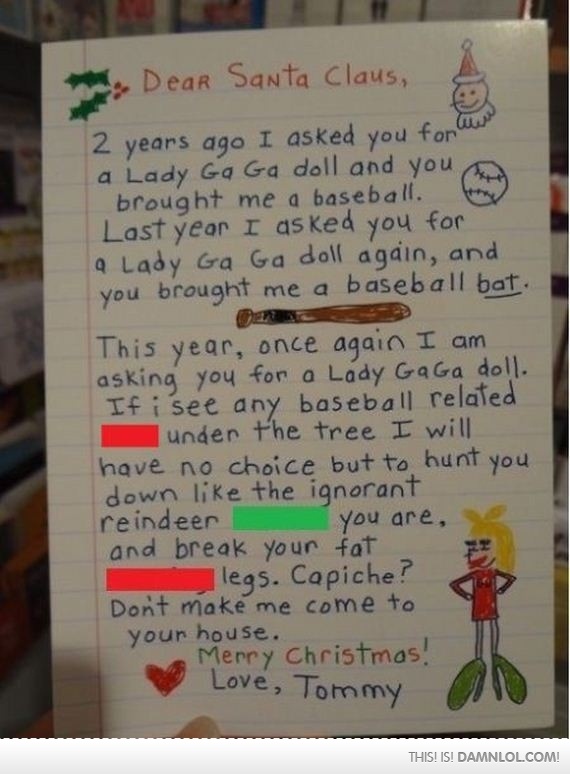 Dear Santa Claus,
2 years ago I asked you for
a Lady Ga Ga doll and you
brought me a baseball.
Last year I asked you for
a Lady Ga Ga doll again, and
you brought me a baseball bat.
This year, once again I am
asking you for a Lady GaGa doll.
If i see any baseball related
under the tree I will
have no choice but to hunt you
down like the ignorant
reindeer you are,
and break your fat
legs. Capiche?
Don't make me come to
your house.
Merry Christmas!
Love, Tommy
THIS! IS! DAMNLOL.COM!